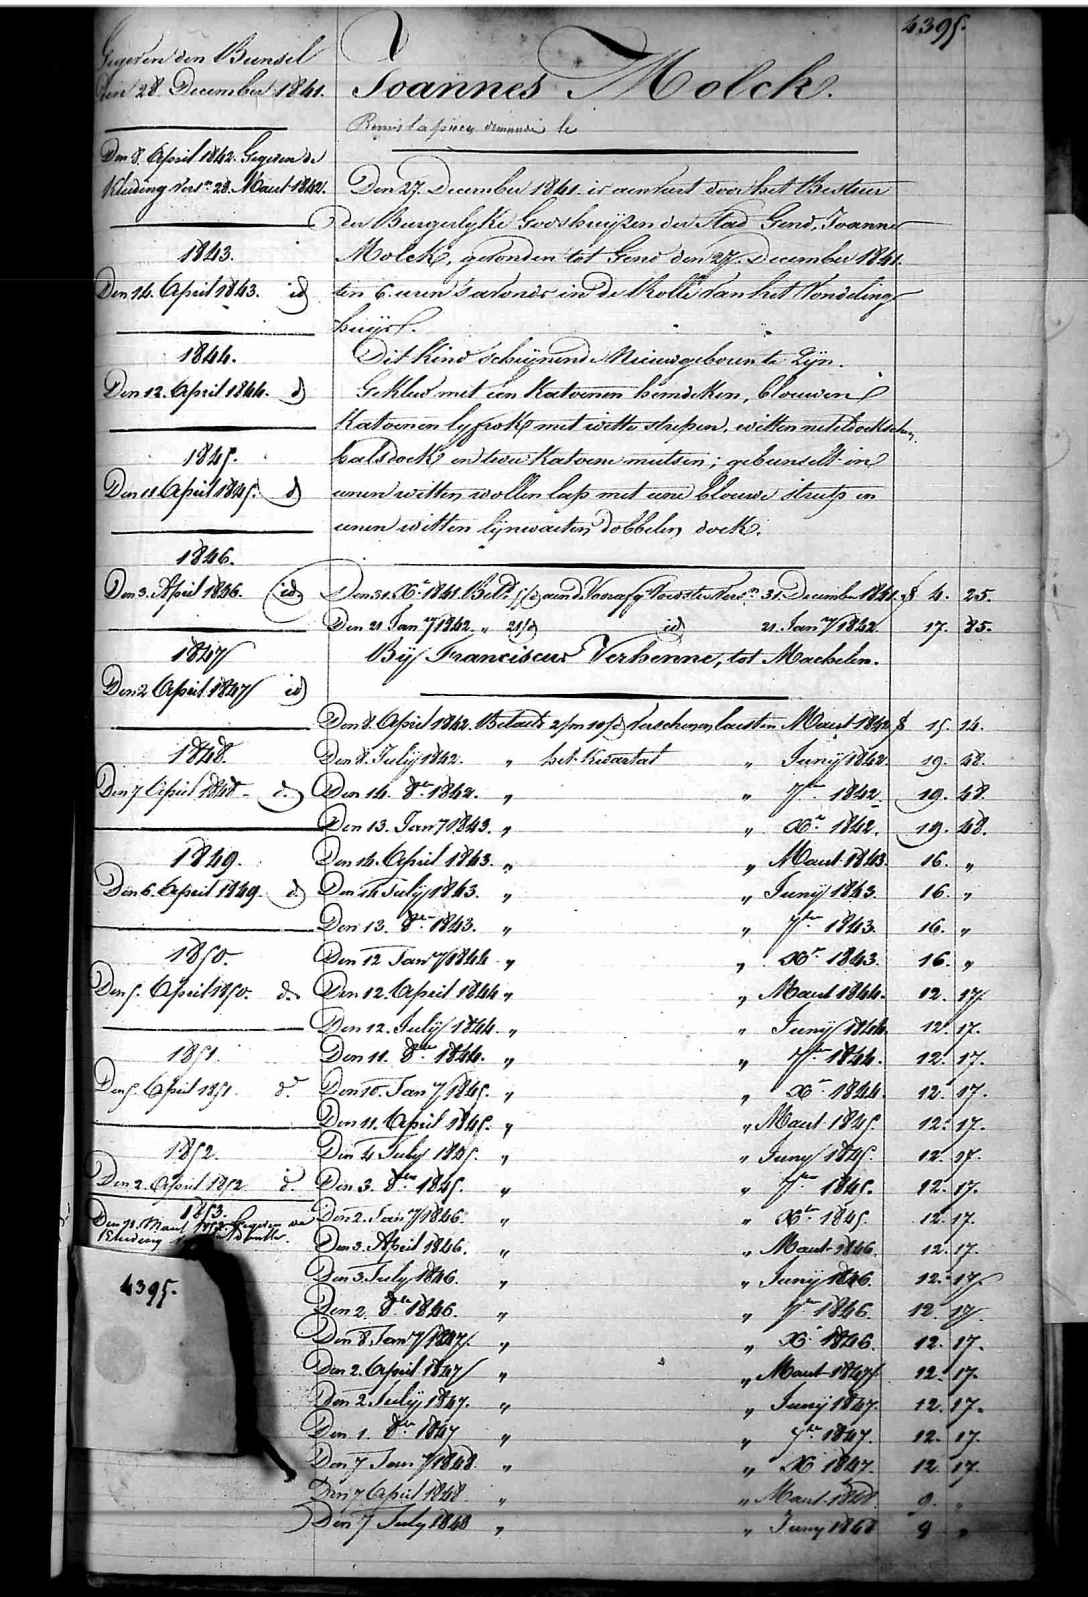 4395.
Gegeven den Bunsel
den 28 December 1841.
Den 8. April 1842. Gegeven de
Kleding vers.n 28. Maart 1842.
1843.
Den 14. April 1843. id
1844.
Den 12. April 1844. d
1845.
Den 11. April 1845. d
1846.
Den 3. April 1846. id
1847
Den 2 April 1847 id
1848.
Den 7 April 1848. d.
1849.
Den 6. April 1849. d.
1850.
Den 5. April 1850. d.
1851
Den 5. April 1851. d.
1852.
Den 2. April 1852 d.
1853.
Den Maart 1853 Gegeven de
Kleeding
4395.
Joannes Molck.
Den 27. December 1841 is aenveert door het Bestuer
der Burgerlyke Godshuijzen der Stad Gend, Joannes
Molck, gevonden tot Gend den 27. December 1841.
ten 6. uren s'avonds in de Rolle van het Vondeling
huijs.
Dit kind schijnende Nieuwgeboren te Zijn.
Gekleed met een Katoenen hemdeken, blouwen
Katoenen lyfrok met witte strepen, witten neteldoekschen
halsdoek en twee Katoene mutsen; gebunselt in
eenen witten wollen lap met eene blouwe streep en
eenen witten lijnwaeten dobbelen doek.
Den 31. Xr. 1841. Bet. 5/d aend. Voorafg. Voedster Vers.n 31. December 1841. F 4. 25.
Den 21 Jany 1842. " 21/d id 21. Jany 1842 17. 85.
Bij Franciscus Verhenne, tot Machelen.
Den 8. April 1842. Betaelt 2/m 10/d verschenen laesten Maart 1842. F 15. 14.
Den 8. Julij 1842. " het Kwartal " Junij 1842. 19. 48.
Den 14. 8er. 1842. " " 7er 1842. 19. 48.
Den 13. Jany 1843. " " Xr. 1842. 19. 48.
Den 14. April 1843. " " Maart 1843. 16. "
Den 14 July 1843. " " Junij 1843. 16. "
Den 13. 8er 1843. " " 7er 1843. 16. "
Den 12 Jany 1844 " " Xr 1843. 16. "
Den 12. April 1844 " " Maart 1844. 12. 17.
Den 12. Julij 1844 " " Junij 1844. 12. 17.
Den 11. 8er 1844. " " 7er 1844. 12. 17.
Den 10. Jany 1845. " " Xr 1844. 12. 17.
Den 11. April 1845. " " Maart 1845. 12. 17.
Den 4 July 1845. " " Juny 1845. 12. 17.
Den 3. 8er 1845. " " 7er 1845. 12. 17.
Den 2. Jany 1846. " " Xr 1845. 12. 17.
Den 3. April 1846. " " Maart 1846. 12. 17.
Den 3. July 1846. " " Junij 1846. 12. 17.
Den 2. 8er 1846. " " 7er 1846. 12. 17.
Den 8. Jany 1847. " " Xr 1846. 12. 17.
Den 2. April 1847 " " Maart 1847. 12. 17.
Den 2 Julij 1847. " " Junij 1847. 12. 17.
Den 1. 8er 1847 " " 7er 1847. 12. 17.
Den 7 Jany 1848. " " Xr 1847. 12. 17.
Den 7 April 1848 " " Maart 1848. 9. "
Den 7 July 1848 " " Juny 1848 9 "